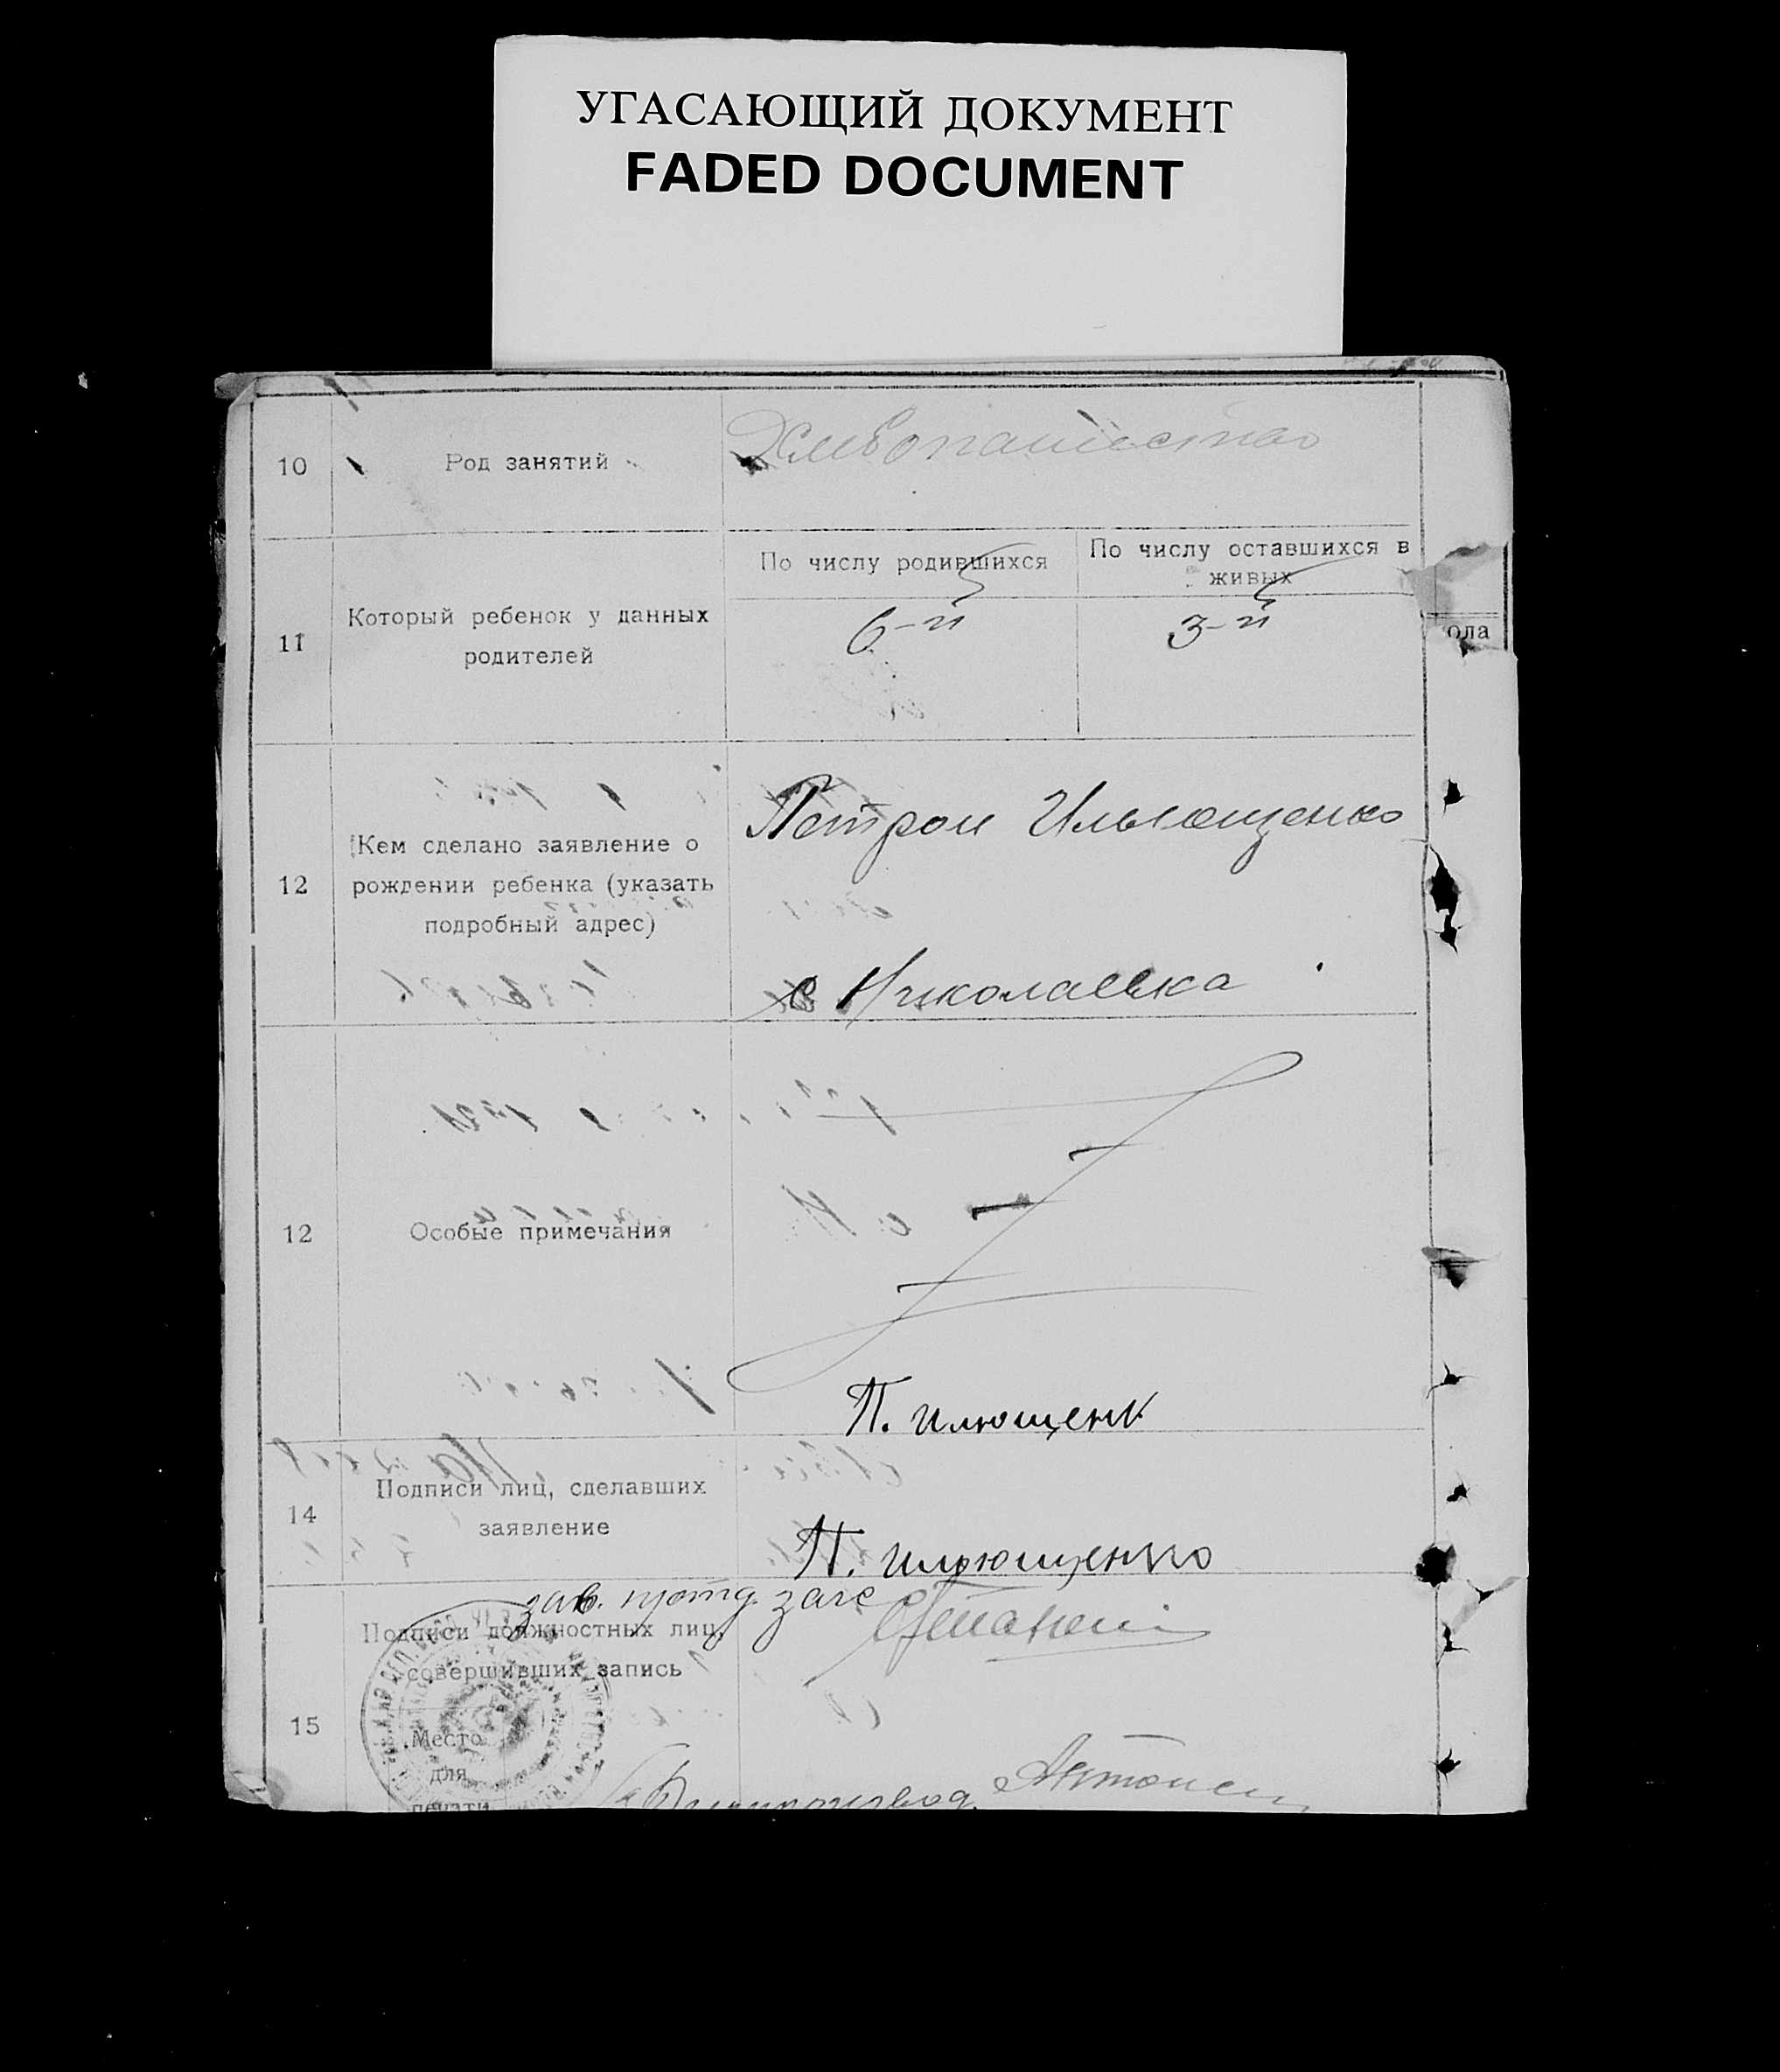 УГАСАЮЩИЙ ДОКУМЕНТ
FADED DOCUMENT
10
Род занятий
Хлебопашество
11
Который ребенок у данных
родителей
По числу родившихся
6-й
По числу оставшихся в
живых
3-й
ола
12
Кем сделано заявление о
рождении ребенка (указать
подробный адрес)
Петром Ильющенко
с Николаевка
12
Особые примечания
П. Илющенк
14
Подписи лиц, сделавших
заявление
П. Илющенко
15
Подписи должностных лиц,
совершивших запись
зав. загс
Место
для
печати